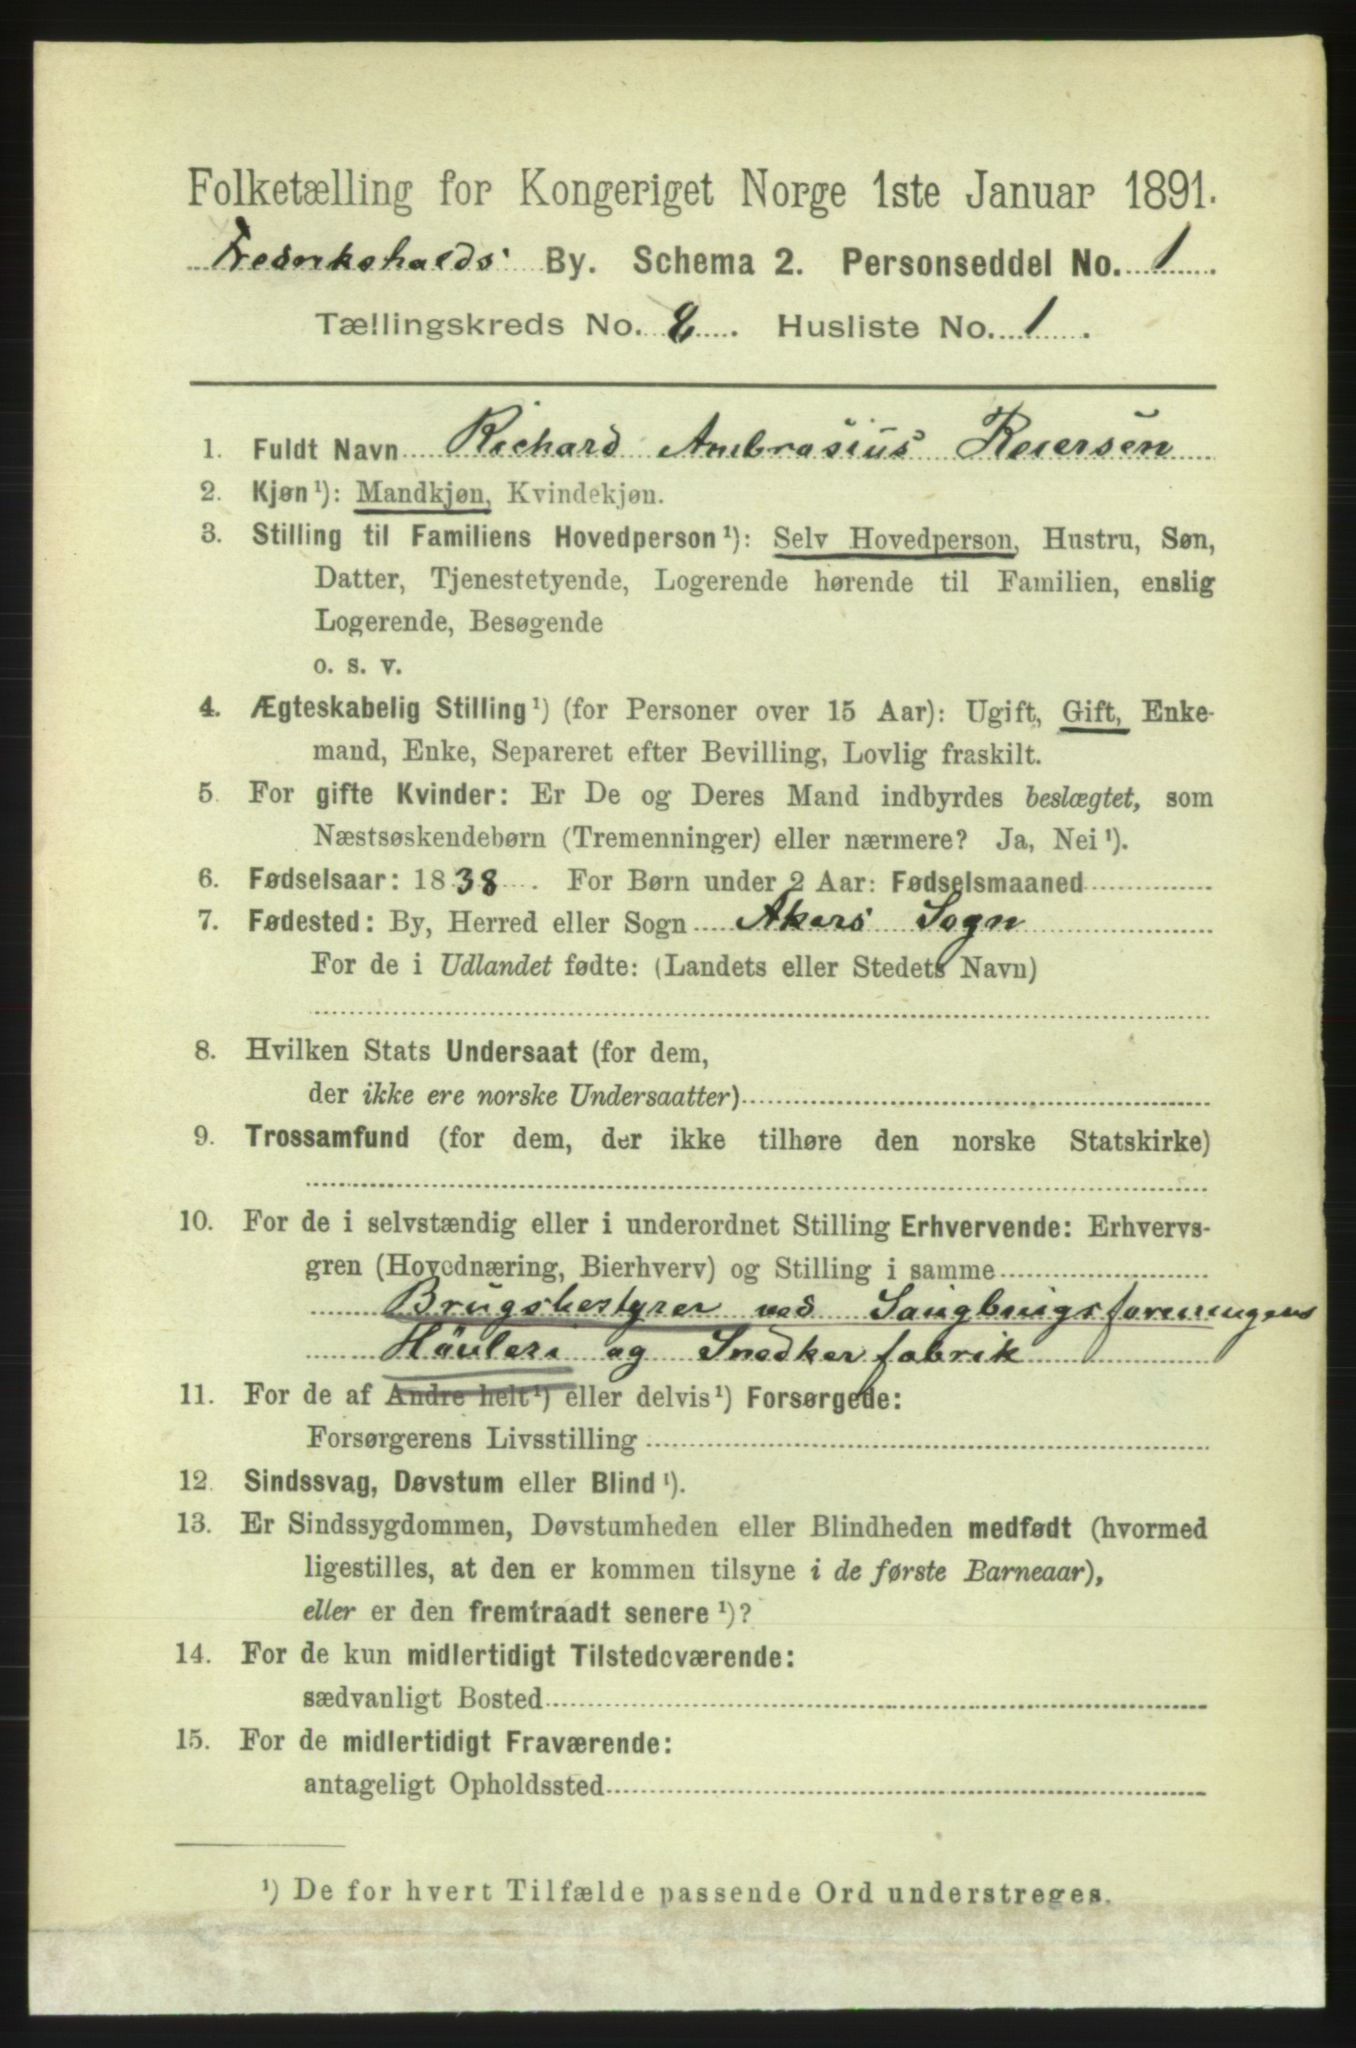 Folketælling for Kongeriget Norge 1ste Januar 1891.
Fredrikshalds By. Schema 2. Personseddel No. 1
Tællingskreds No. 2. Husliste No. 1.
1. Fuldt Navn Richard Ambrosius Reiersen
2. Kjøn ¹): Mandkjøn, Kvindekjøn.
3. Stilling til Familiens Hovedperson ¹): Selv Hovedperson, Hustru, Søn,
Datter, Tjenestetyende, Logerende hørende til Familien, enslig
Logerende, Besøgende
o. s. v.
4. Ægteskabelig Stilling ¹) (for Personer over 15 Aar): Ugift, Gift, Enke-
mand, Enke, Separeret efter Bevilling, Lovlig fraskilt.
5. For gifte Kvinder: Er De og Deres Mand indbyrdes beslægtet, som
Næstsøskendebørn (Tremenninger) eller nærmere? Ja, Nei ¹).
6. Fødselsaar: 1838. For Børn under 2 Aar: Fødselsmaaned
7. Fødested: By, Herred eller Sogn Akers Sogn
For de i Udlandet fødte: (Landets eller Stedets Navn)
8. Hvilken Stats Undersaat (for dem,
der ikke ere norske Undersaatter)
9. Trossamfund (for dem, der ikke tilhøre den norske Statskirke)
10. For de i selvstændig eller i underordnet Stilling Erhvervende: Erhvervs-
gren (Hovednæring, Bierhverv) og Stilling i samme
Brugsbestyrer ved Saugbrugsforeningens
Høvleri og Snedkerfabrik
11. For de af Andre helt ¹) eller delvis ¹) Forsørgede:
Forsørgerens Livsstilling
12. Sindssvag, Døvstum eller Blind ¹).
13. Er Sindssygdommen, Døvstumheden eller Blindheden medfødt (hvormed
ligestilles, at den er kommen tilsyne i de første Barneaar),
eller er den fremtraadt senere ¹)?
14. For de kun midlertidigt Tilstedeværende:
sædvanligt Bosted
15. For de midlertidigt Fraværende:
antageligt Opholdssted
¹) De for hvert Tilfælde passende Ord understreges.